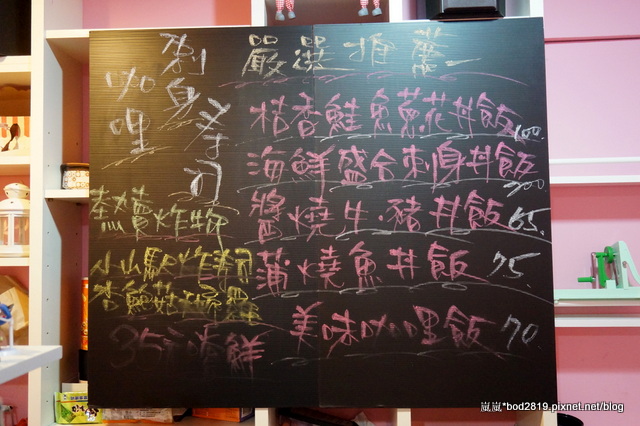 嚴選推薦
桔香鮭魚蔥花丼飯 100.
海鮮盛合刺身丼飯 200
醬燒生.豬丼飯 65.
蒲燒魚丼飯 75.
美味咖哩飯 70.
咖哩
刺身
壽司
熱賣炸物
杏鮑菇
35元嚐鮮
嵐嵐*bod2819.pixnet.net/blog